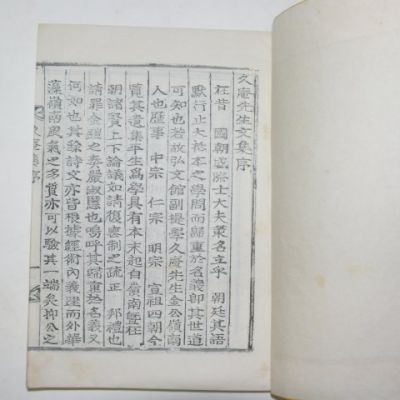 久庵先生文集序
在昔 國朝盛際士大夫策名立乎 朝廷其語
默行止大抵本之學問而歸重於名義卽其世道
可知也若故弘文館副提學久庵先生金公嶺南
人也歷事 中宗 仁宗 明宗 宣祖四朝今
覽其遺集平生爲學具有本末起自嶺南
朝諸賢上下論議如請復喪制之疏正 邦禮也
請罪金 之奏嚴淑慝也嗚呼其 重 名義又
何如也其餘詩文亦皆根據經術內義 而外華
藻嶺南風氣之多質亦可以驗其一端矣抑公之
久庵集序